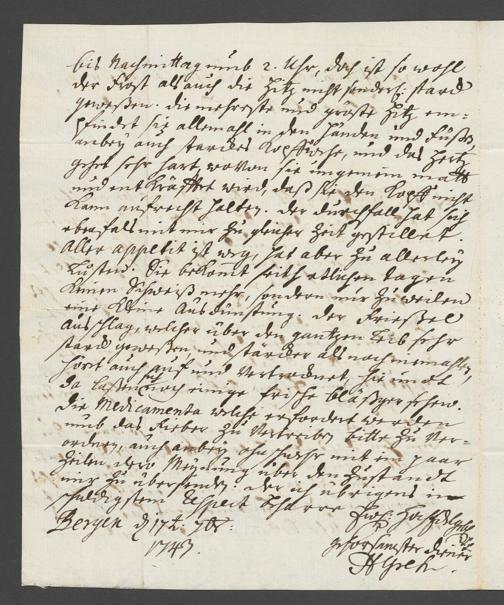 bis Nachmittag umb 2. Uhr, doch ist so wohl
der Frost als auch die Hitz nicht sonderl: starck
geweßen. die mehreste und gröste Hitz em-
pfindet sie allemahl in den Händen und Füßen,
anbey auch starckes Kopffwehe, und das Hertz
gehet sehr hart, wovon sie ungemein matt
und entkräfftet wird, daß sie den Kopff nicht
kan aufrecht halten. der durchfall hat sich
ebenfals mit zu gleicher Zeit gestillet
aller appetit ist weg, hat aber zu allerley
Lusten. Sie bekomt seith etlichen tagen
keinen Schweiß mehr, sondern nur zu weilen
eine kleine Ausdünstung. der Frießel
Ausschlag, welcher über den gantzen Leib sehr
starck geweßen und stärcker als noch niemahlen,
hört auch auf und vertrocknet, hie und
da laßen sich noch einige frische bläßger sehen.
die Medicamenta welche erfordert werden
umb das Fieber zu vertreiben bitte zu ver-
ordnen, auch anbey mit ein paar
Zeilen dero Meinung über den Zustandt
mir zu übersenden, der ich übrigens in
schuldigstem Respect beharre
Bergen d 17t. 7br:
1743.
gehorsamster diener